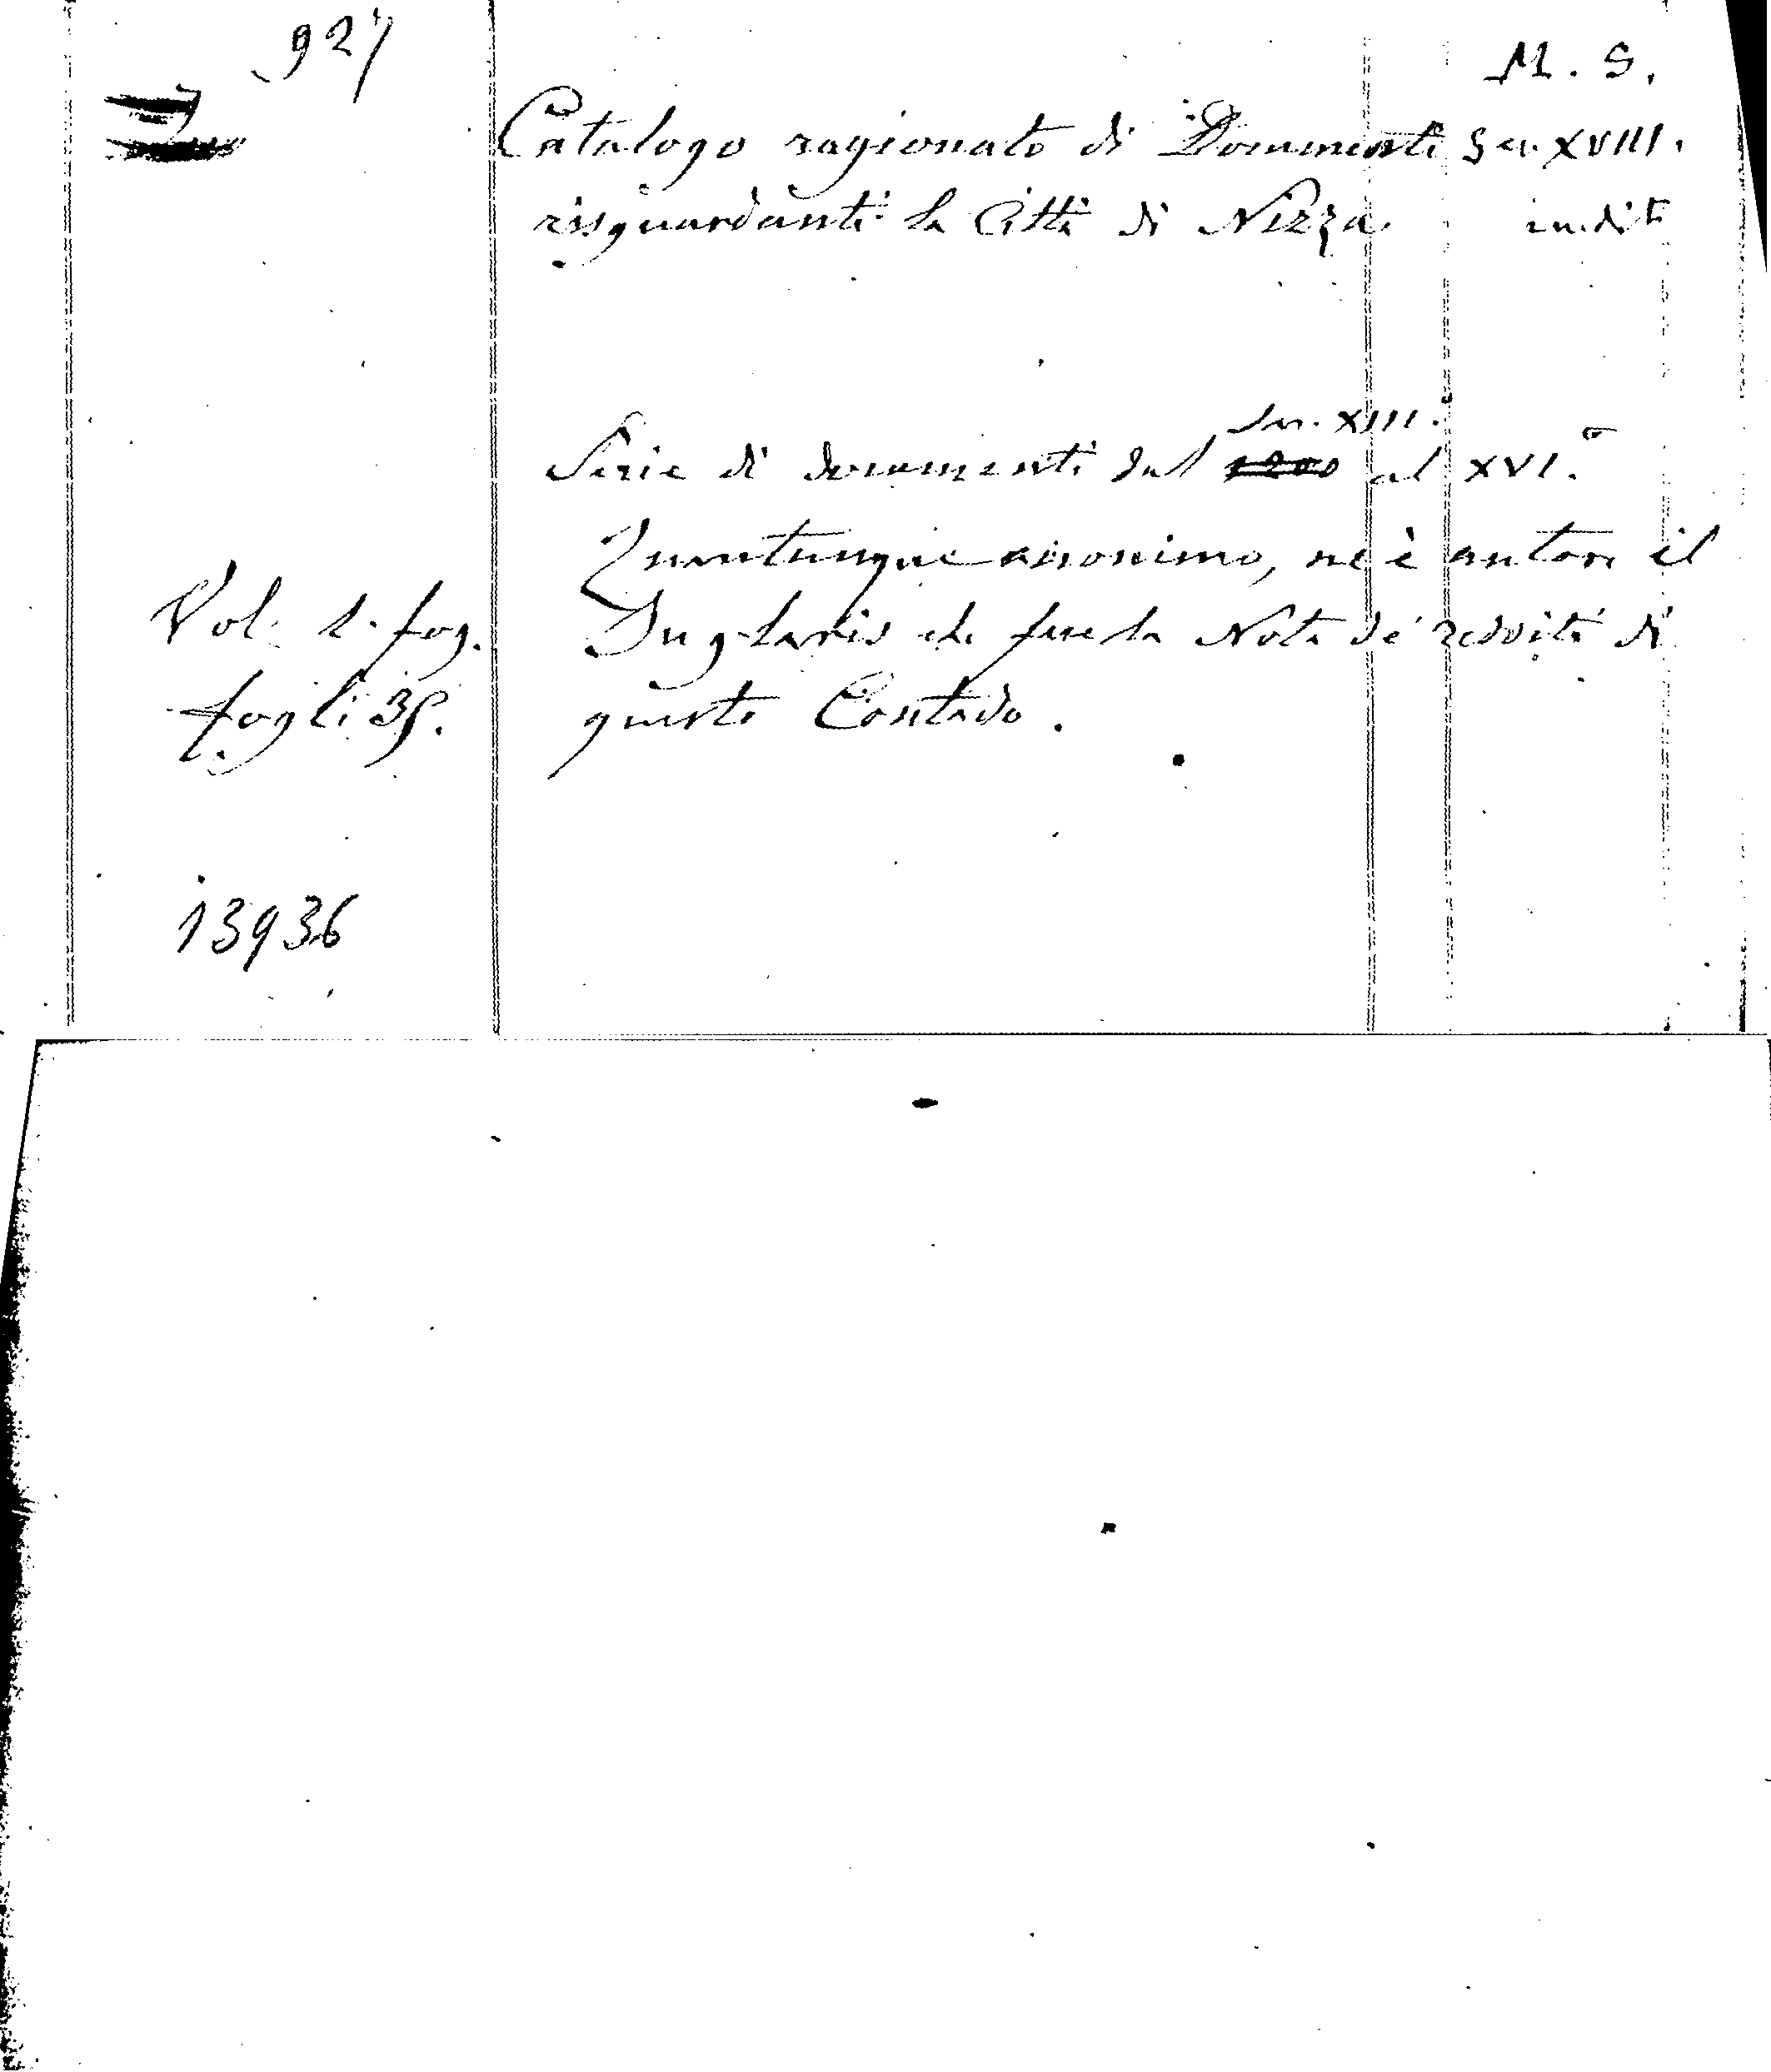 927
M. S.
Catalogo ragionato di Documenti Sec. XVIII.
risguardanti la Città di Nizza. inedito
Sec. XIII.
Serie di documenti dal 1200 al XVI.º
Quantunque anonimo, ne è autore il
Vol. 1. fog. Juglaris che fece la Nota de' redditi di
fogli 35. questo Contado.
13936